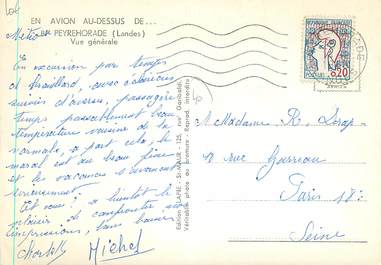 EN AVION AU-DESSUS DE...
PEYREHORADE (Landes)
Vue générale
En excursion par temps
de brouillard, avec éclaircies
suivies d'averses, passage
temps passablement beau
température voisine de la
normale, à part cela, le
moral est au beau fixe
et les vacances s'avancent
sereinement.
Et vous ? à bientôt le
plaisir de confronter nos
impressions, bons baisers
Michel
Edition ELAPIE - St-MAUR - 125, rue Garibaldi
Véritable photo au bromure - Reprod. Interdite
REPUBLIQUE FRANCAISE
POSTES 0,20
Madame R.
10 rue Garreau
Paris 18e
Seine